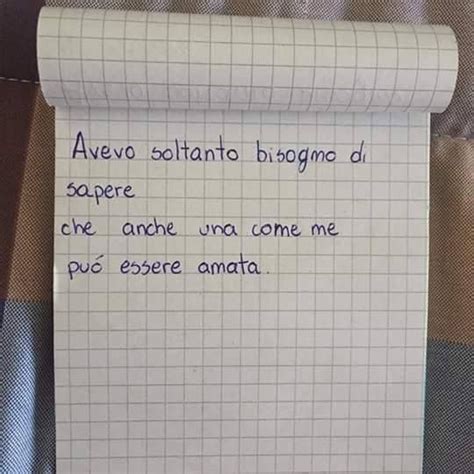 Avevo soltanto bisogno di
sapere
che anche una come me
puó essere amata.